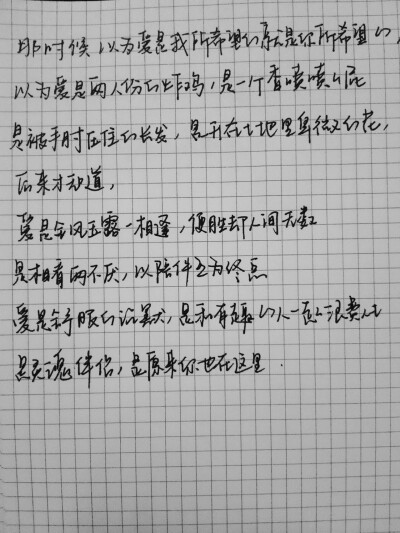 那时候以为爱是我所希望的就是你所希望的,
以为爱是两人份的炸鸡,是一个香喷喷的屁
是被手肘压住的长发,是开在土地里卑微的花,
后来才知道,
爱是金风玉露一相逢,便胜却人间无数
是相看两不厌,以陪伴互为终点
爱是舒服的沉默,是和有趣的人一起浪费人生
是灵魂伴侣,是原来你也在这里.